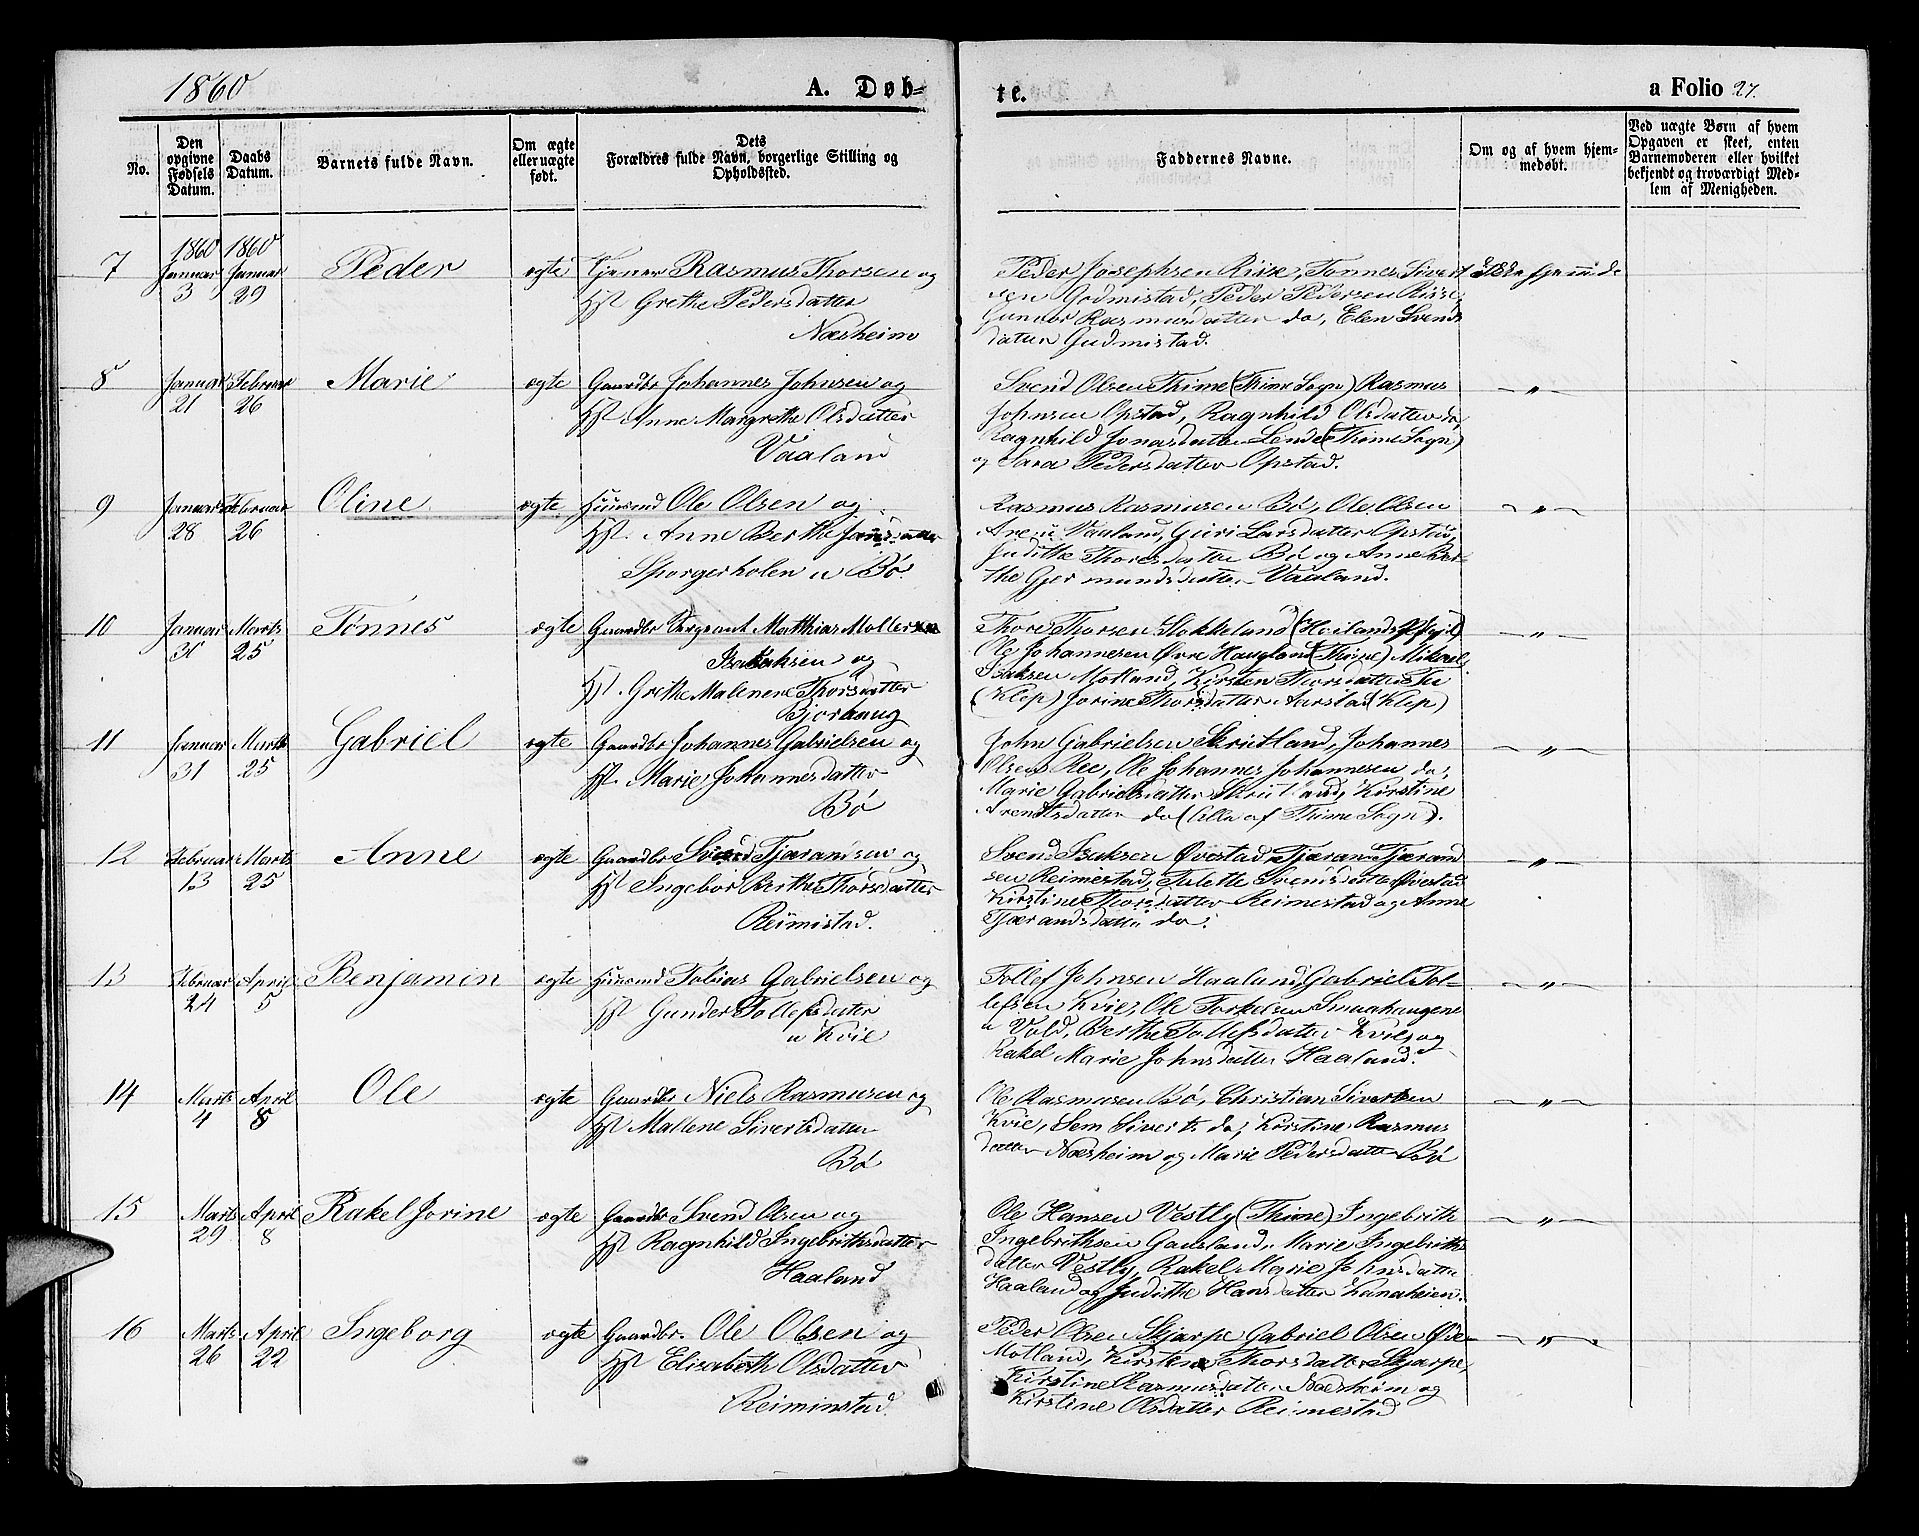 1860
A. Døb=
te.
a Folio 27.
No.
Den opgivne Fødsels Datum.
Daabs Datum.
Barnets fulde Navn.
Om ægte eller uægte født.
Dets Forældres fulde Navn, borgerlige Stilling og Opholdssted.
Faddernes Navne.
Om og af hvem hjemmedøbt.
Ved uægte Børn af hvem Opgaven er skeet, enten Barnemoderen eller hvilket bekjendt og troværdigt Medlem af Menigheden.
1860 1860
7 Januar 3 Januar 29 Peder ægte Tjener Rasmus Thorsen og
Hst Grethe Pedersdatter
Næsheim
Peder Josephsen Riise, Tønnes Sivert
sen Godmistad, Peder Pedersen Risse
Gunvor Rasmusdatter do, Elen Svends
datter Gudmistad.
8 Januar 21 Februar 26 Marie ægte Gaardbr Johannes Johnsen og
Hst Anne Margrethe Olsdatter
Vaaland
Svend Olsen Thime (Thime Sogn) Rasmus
Johnsen Opstad, Ragnhild Olsdatter do,
Ragnhild Jonasdatter Lende (Thime Sogn)
og Sara Pedersdatter Opstad.
— „ —
9 Januar 28 Februar 26 Oline ægte Huusmd Ole Olsen og
Hst. Anne Berthe Jansdatter
Sporgerholen u Bø.
Rasmus Rasmusen Bø, Ole Olsen
Vaaland, Guri Larsdatter Opstad,
Judithe Thoresdatter Bø og Anne Ber-
the Gjermundsdatter Vaaland.
— „ —
10 Januar 31 Marts 25 Tønnes ægte Gaardbr Sergeant Matthias Moller
Isaaksen og
Hst. Grethe Malene Thorsdatter
Bjorhaug
Thore Thorsen Stokkeland (Høilands Pgjd)
Ole Johannesen Øvre Haugland (Thime) Mikael
Isaksen Motland, Kirsten Thorsdatter Tu
(Klep) Jorine Thorsdatter Aarstad (Klep)
— „ —
11 Januar 31 Marts 25 Gabriel ægte Gaardbr Johannes Gabrielsen og
Hst. Marie Johannesdatter
Bø
John Gabrielsen Skrutland, Johannes
Olsen Ree, Ole Johannes Johannesen do,
Marie Gabrielsdatter Skrutland, Kirstine
Arentsdatter do (Alle af Thime Sogn).
— „ —
12 Februar 13 Marts 25 Anne ægte Gaardbr Svend Tjærandsen og
Hst Ingebor Berthe Thorsdatter
Reimistad.
Svend Isaksen Øvestad, Tjæran Tjærand
sen Reimestad, Tulette Svendsdatter Øvestad
Kirstine Thorsdatter Reimestad og Anne
Tjærandsdatter do.
— „ —
13 Februar 24 April 5 Benjamin ægte Huusmd Tobias Gabrielsen og
Hst Gunder Tollefsdatter
u Kvie
Tollef Johnsen Haaland, Gabriel Tol-
lefsen Kvie, Ole Torkelsen Smaahaugene
u Vold, Berthe Tollefsdatter Kvie og
Rakel Marie Johnsdatter Haaland.
— „ —
14 Marts 4 April 8 Ole ægte Gaardbr Niels Rasmusen og
Hst Mallene Sivertsdatter
Bø
Ole Rasmusen Bø, Christian Sivertsen
Kvie, Sem Sivert. do, Kirstine Rasmus
datter Næsheim og Marie Pedersdatter Bø
— „ —
15 Marts 29 April 8 Rakel Jorine ægte Gaardbr Svend Olsen og
Hst Ragnhild Ingebrithsdatter
Haaland
Ole Hansen Vestly (Thime) Ingebrith
Ingebrithsen Gausland, Marie Ingebriths
datter Vestly, Rakel Marie Johnsdatter
Haaland og Judithe Hansdatter Kanaheien.
— „ —
16 Marts 26 April 22 Ingeborg ægte Gaardbr. Ole Olsen og
Hst Elisabeth Olsdatter
Reiminstad.
Peder Olsen Skjarpe Gabriel Olsen Øde-
Motland, Kirstene Thorsdatter Skjarpe,
Kirstine Rasmusdatter Næsheim og
Kirstine Olsdatter Reimestad
— „ —